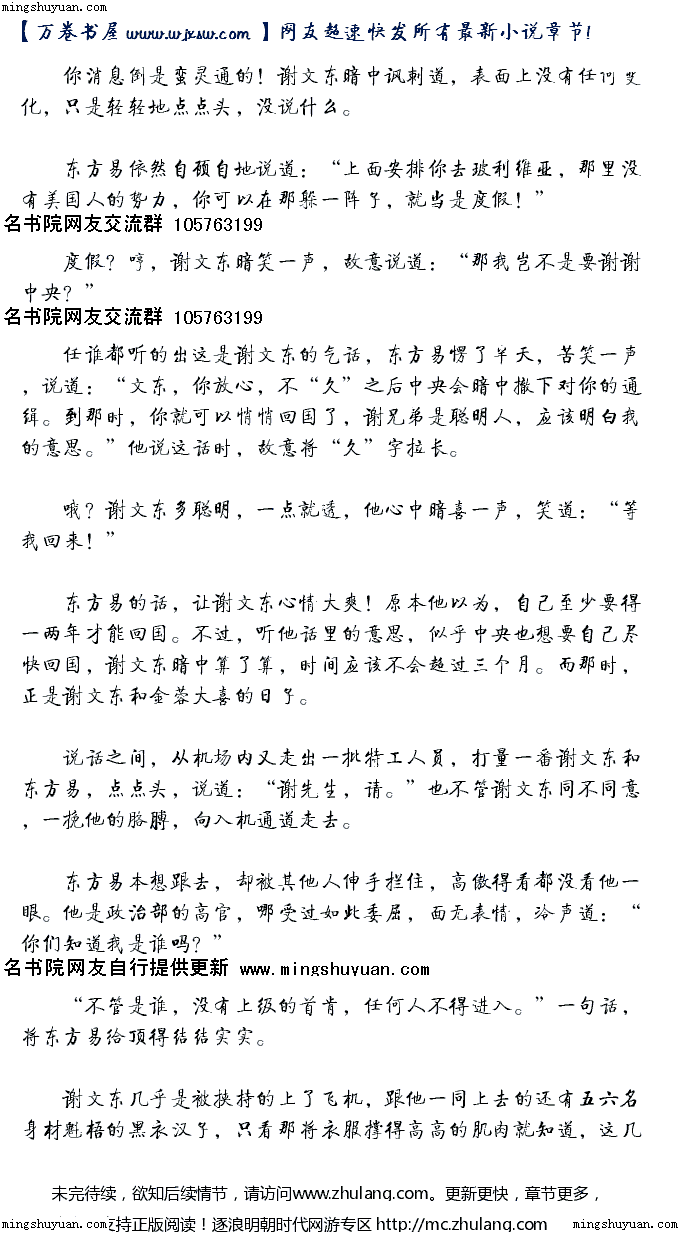 mingshuyuan.com mingshuyuan.com
【万卷书屋 www.wjxsw.com 】网友超速快发所有最新小说章节!
你消息倒是蛮灵通的！谢文东暗中讽刺道，表面上没有任何变
化，只是轻轻地点点头，没说什么。
东方易依然自顾自地说道：“上面安排你去玻利维亚，那里没
有美国人的势力，你可以在那躲一阵子，就当是度假！”
名书院网友交流群 105763199
度假？哼，谢文东暗笑一声，故意说道：“那我岂不是要谢谢
中央？”
名书院网友交流群 105763199
任谁都听的出这是谢文东的气话，东方易愣了半天，苦笑一声
，说道：“文东，你放心，不“久”之后中央会暗中撤下对你的通
缉。到那时，你就可以悄悄回国了，谢兄弟是聪明人，应该明白我
的意思。”他说这话时，故意将“久”字拉长。
哦？谢文东多聪明，一点就透，他心中暗喜一声，笑道：“等
我回来！”
东方易的话，让谢文东心情大爽！原本他以为，自己至少要得
一两年才能回国。不过，听他话里的意思，似乎中央也想要自己尽
快回国，谢文东暗中算了算，时间应该不会超过三个月。而那时，
正是谢文东和金蓉大喜的日子。
说话之间，从机场内又走出一批特工人员，打量一番谢文东和
东方易，点点头，说道：“谢先生，请。”也不管谢文东同不同意
，一挽他的胳膊，向入机通道走去。
东方易本想跟去，却被其他人伸手拦住，高傲得看都没看他一
眼。他是政治部的高官，哪受过如此委屈，面无表情，冷声道：“
你们知道我是谁吗？”
名书院网友自行提供更新 www.mingshuyuan.com
“不管是谁，没有上级的首肯，任何人不得进入。”一句话，
将东方易给顶得结结实实。
谢文东几乎是被挟持的上了飞机，跟他一同上去的还有五六名
身材魁梧的黑衣汉子，只看那将衣服撑得高高的肌肉就知道，这几
未完待续，欲知后续情节，请访问www.zhulang.com。更新更快，章节更多，
mingshuyuan.com 持正版阅读！逐浪明朝时代网游专区 http://mc.zhulang.com mingshuyuan.com